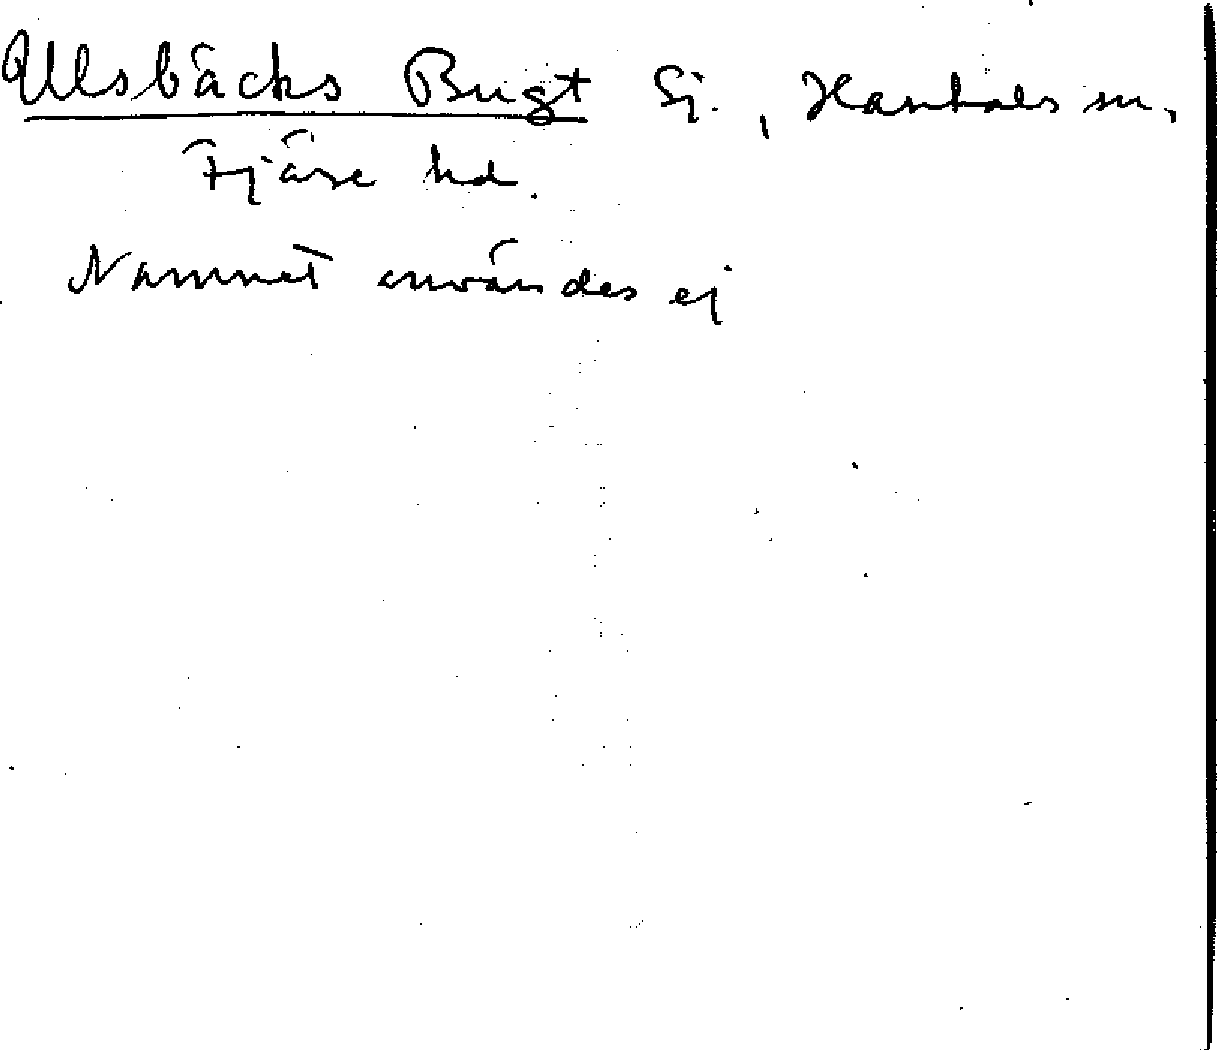 Ullsbäcks Bugt Sj., Hanhals sn,
Fjäre hd.
Namnet användes ej